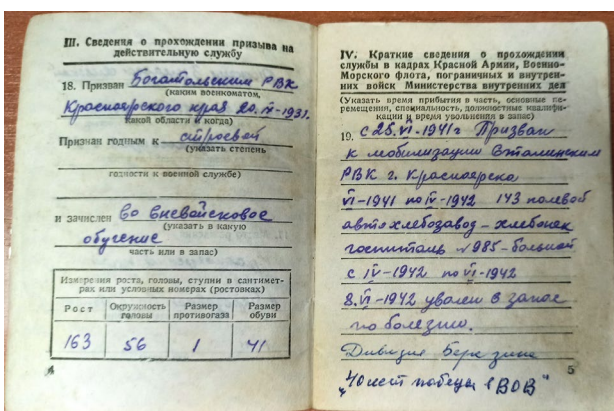 III. Сведения о прохождении призыва на
действительную службу
18. Призван Боготольским РВК
(каким военкоматом,
Красноярского края 20.IX-1931.
какой области и когда)
Признан годным к строевой
(указать степень
годности к военной службе)
и зачислен во вневойсковое
(указать в какую
обучение
часть или в запас)
Измерения роста, головы, ступни в сантимет-
рах или условных номерах (ростовках)
Рост Окружность головы Размер противогаза Размер обуви
163 56 1 41
4
IV. Краткие сведения о прохождении
службы в кадрах Красной Армии, Военно-
Морского флота, пограничных и внутрен-
них войск Министерства внутренних дел
(Указать время прибытия в часть, основные пе-
ремещения, специальность, должностные квалифи-
кации и время увольнения в запас)
19. с 25.VI-1941 г Призван
к мобилизации Сталинским
РВК г. Красноярска
VI-1941 по IV-1942 143 полевой
автохлебозавод – хлебопек
госпиталь №985 – больной
с IV-1942 по VI-1942
8.VI-1942 уволен в запас
по болезни.
Дивизия
5
"40 лет победы в ВОВ"